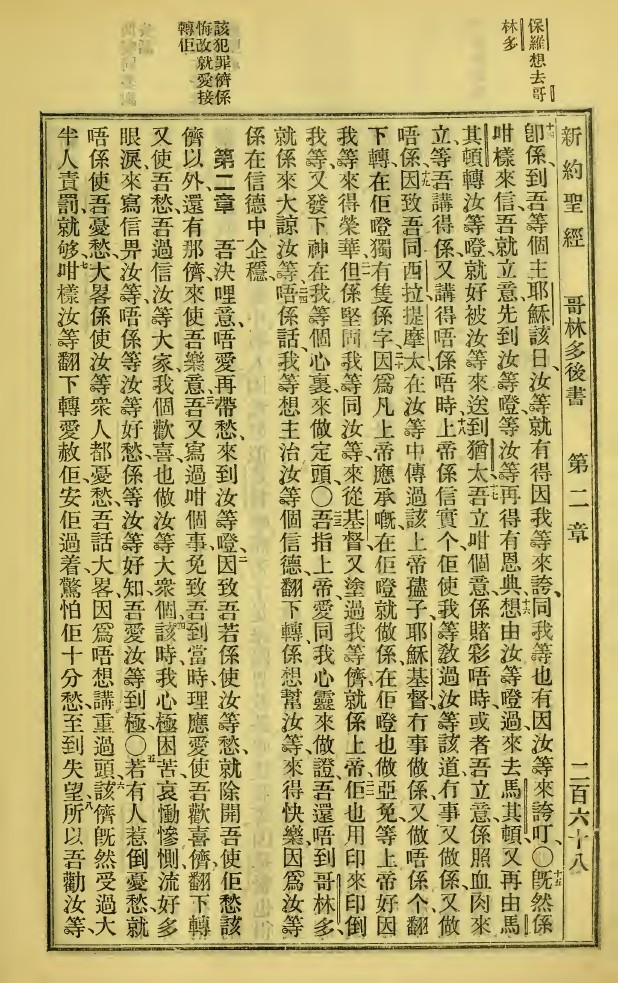 保羅想去哥
林多
該犯罪儕係
悔改就愛接
轉佢
新約聖經 哥林多後書 第二章 二百六十八
十四
卽係到吾等個主耶穌該日、汝等就有得因我等來誇、同我等也有因汝等來誇叮、〇旣然係十五
咁樣來信、吾就立意先到汝等嶝、等汝等再得有恩典、想由汝等嶝過來去馬其頓、又再由馬十六
其頓轉汝等嶝、就好被汝等來送到猶太、吾立咁個意、係賭彩唔時、或者吾立意係照血肉來十七
立、等吾講得係、又講得唔係唔時、上帝係信實个、佢使我等敎過汝等該道、冇事又做係、又做十八
唔係、因致吾同西拉提摩太在汝等中傳過該上帝孻子耶穌基督、冇事做係、又做唔係个、翻十九
下轉在佢嶝獨有隻係字、因爲凡上帝應承嘅、在佢嶝就做係、在佢嶝也做亞𠒇、等上帝好因二十
我等來得榮華、但係堅固我等同汝等來從基督、又塗過我等儕、就係上帝、佢也用印來印倒二一 二二
我等、又發下神在我等個心裏來做定頭、〇吾指上帝愛同我心靈來做證、吾還唔到哥林多、二三
就係來大諒汝等、唔係話我等想主治汝等個信德、翻下轉係想幫汝等來得快樂、因爲汝等二四
係在信德中企穩、
第二章 吾決哩意、唔愛再帶愁來到汝等嶝、因致吾若係使汝等愁、就除開吾使佢愁該一 二
儕以外、還有那儕來使吾樂意、吾又寫過咁個事、免致吾到當時、理應愛使吾歡喜儕、翻下轉三
又使吾愁、吾過信汝等大家、我個歡喜也做汝等大衆個、該時我心極因苦哀慟慘惻、流好多四
眼淚來寫信畀汝等、唔係等汝等好愁、係等汝等好知、吾愛汝等到極、〇若有人惹倒憂愁、就五
唔係使吾憂愁、大畧係使汝等衆人都憂愁、吾話大畧、因爲唔想講重過頭、該儕旣然受過大六
半人責罰、就够咁樣、汝等翻下轉愛赦佢安佢過着、驚怕佢十分愁、至到失望、所以吾勸汝等、七 八